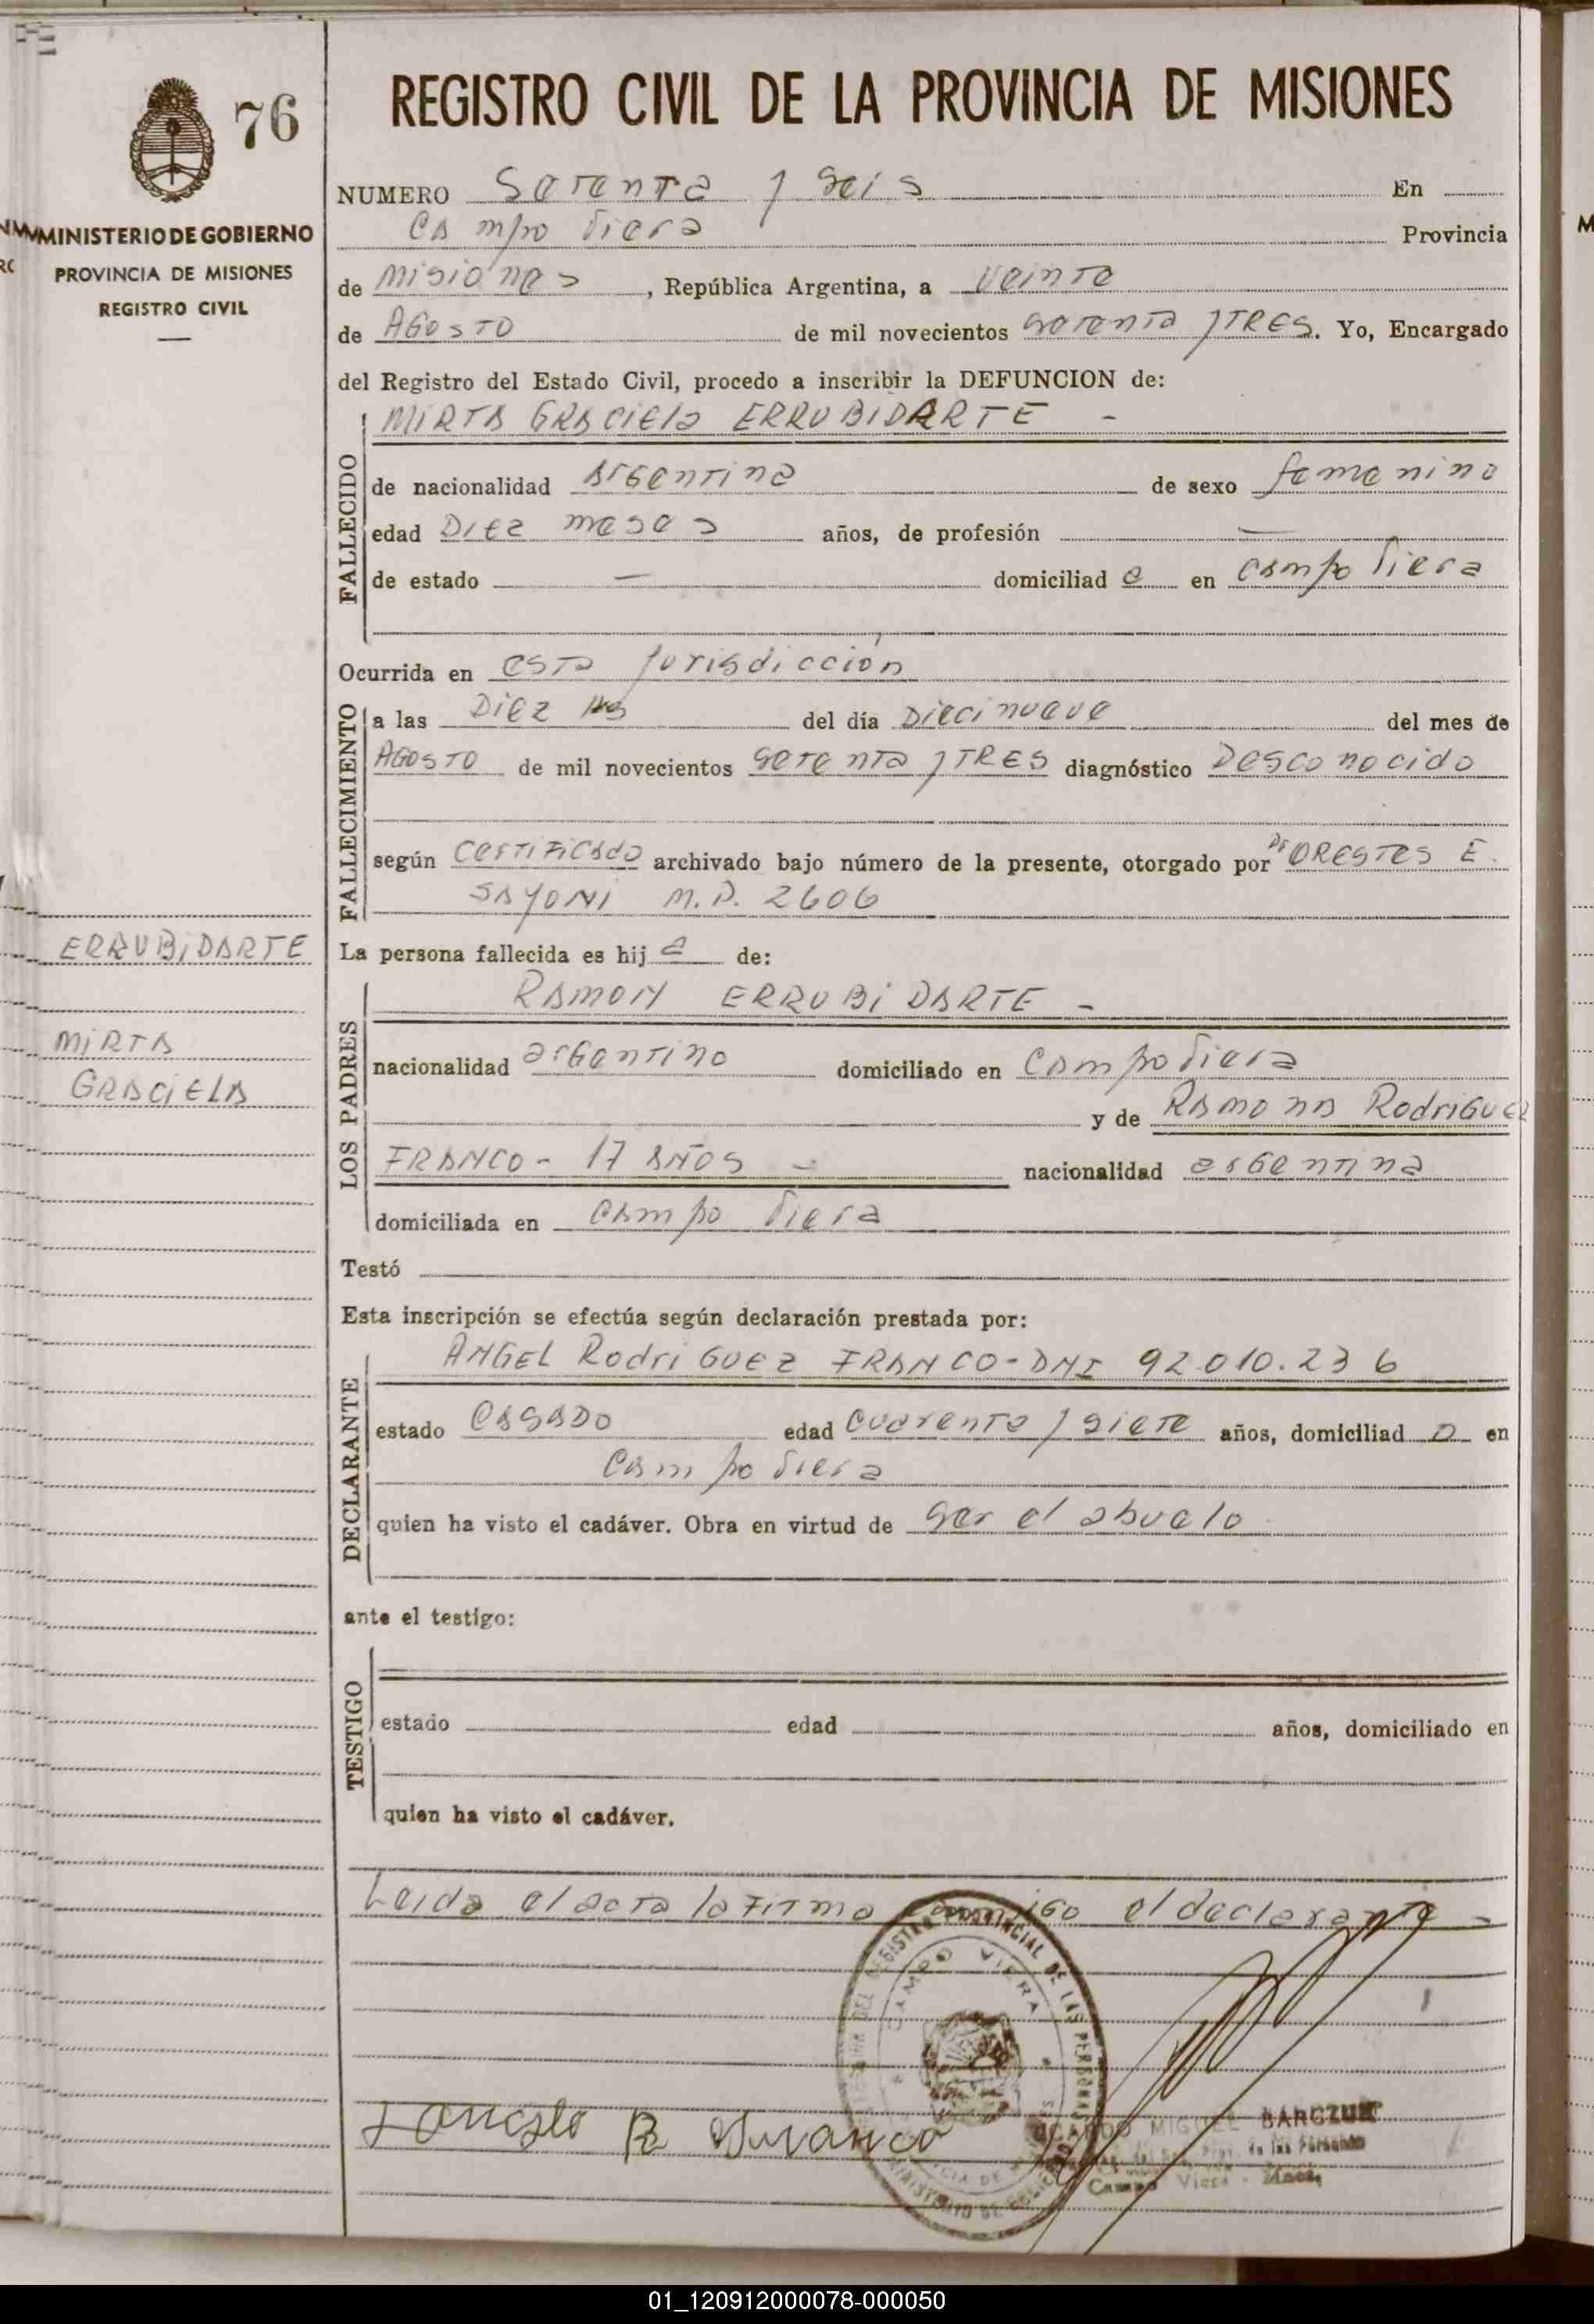 76
MINISTERIO DE GOBIERNO
PROVINCIA DE MISIONES
REGISTRO CIVIL
ERRUBIDARTE
MIRTA
GRACIELA
REGISTRO CIVIL DE LA PROVINCIA DE MISIONES
NUMERO Setenta y Seis En
Campo Viera Provincia
de Misiones, República Argentina, a Veinte
de AGOSTO de mil novecientos setenta y TRES. Yo, Encargado
del Registro del Estado Civil, procedo a inscribir la DEFUNCION de:
MIRTA GRACIELA ERRUBIDARTE -
FALLECIDO
de nacionalidad Argentina de sexo femenino
edad Diez meses años, de profesión —
de estado — domiciliad a en Campo Viera
Ocurrida en esta Jurisdicción
FALLECIMIENTO
a las Diez Hs del día Diecinueve del mes de
AGOSTO de mil novecientos setenta y TRES diagnóstico Desconocido
según Certificado archivado bajo número de la presente, otorgado por Dr ORESTES E.
SAYONI M.P. 2606
La persona fallecida es hij a de:
LOS PADRES
RAMON ERRUBIDARTE -
nacionalidad argentino domiciliado en Campo Viera
y de RAMONA RodriGuez
FRANCO - 17 AÑOS - nacionalidad argentina
domiciliada en Campo Viera
Testó
Esta inscripción se efectúa según declaración prestada por:
DECLARANTE
ANGEL RodriGuez FRANCO - DNI 92.010.236
estado CASADO edad cuarenta y siete años, domiciliad o en
Campo Viera
quien ha visto el cadáver. Obra en virtud de ser el abuelo
ante el testigo:
TESTIGO
estado edad años, domiciliado en
quien ha visto el cadáver.
Leida el acta la firma conmigo el declarante -
CAMPO VIERA
MIGUEL BARCZUK
de las Personas
Campo Viera - Mnes.
01_120912000078-000050